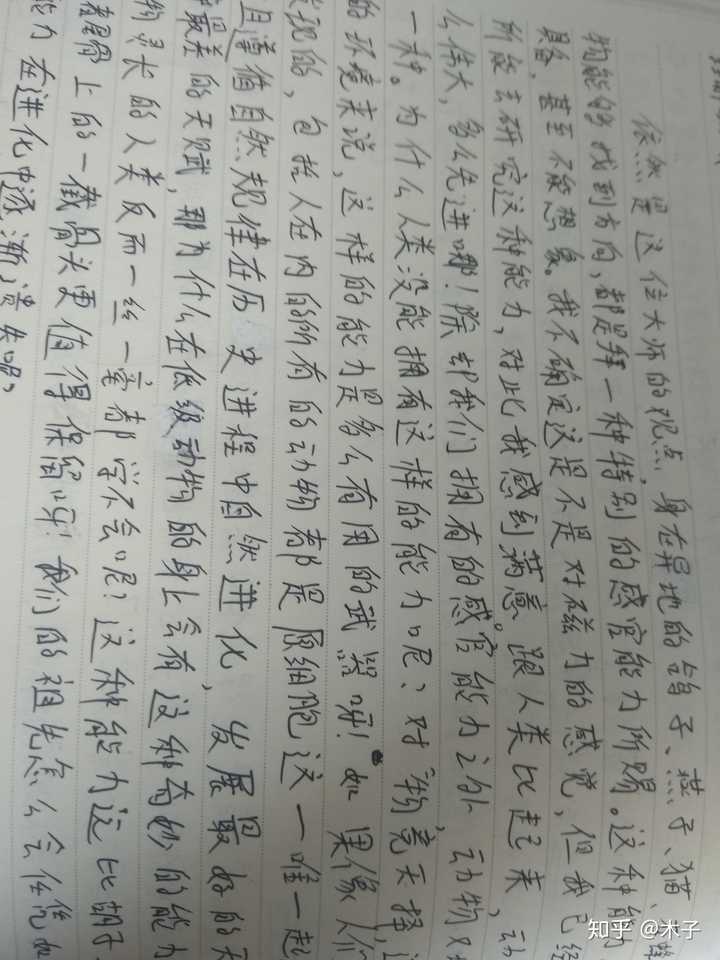 依然是这位大师的观点,身在异地的鸽子、燕子、猫、蜂
物能够找到方向,都是拜一种特别的感官能力所赐。这种能力
具备,甚至不能想象。我不确定这是不是对磁力的感觉,但我已经
所能去研究这种能力,对此我感到满意。跟人类比起来,动
么伟大,多么先进哪!除却我们拥有的感官能力之外,动物又
一种。为什么人类没能拥有这样的能力呢、对"物竞天择,
的环境来说,这样的能力是多么有用的武器呀!如果像人们
发现的,包括人在内的所有的动物都是原细胞这一唯一起
且遵值自然规律在历史进程中自然进化,发展最好的天
最差的天赋,那为什么在低级动物的身上会有这种奇妙的能力
物灵长的人类反而一丝一毫都学不会呢?这种能力远比胡子
椎骨上的一截骨头更值得保留呀!我们的祖先怎么会任凭如
能力在进化中逐渐遗失呢?
知乎 @米子